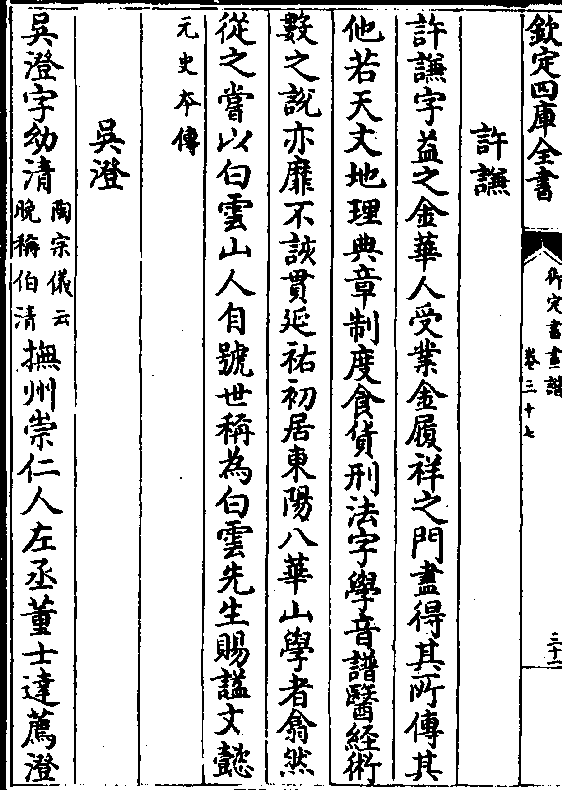 欽定四庫全書
御定書畫譜
卷三十七
三十一
許謙
許謙字益之金華人受業金履祥之門盡得其所傳其
他若天文地理典章制度食貨刑法字學音譜醫經術
數之說亦靡不該貫延祐初居東陽八華山學者翕然
從之嘗以白雲山人自號世稱為白雲先生賜諡文懿
元史本傳
吳澄
吳澄字幼清陶宗儀云晚稱伯清撫州崇仁人左丞董士達薦澄